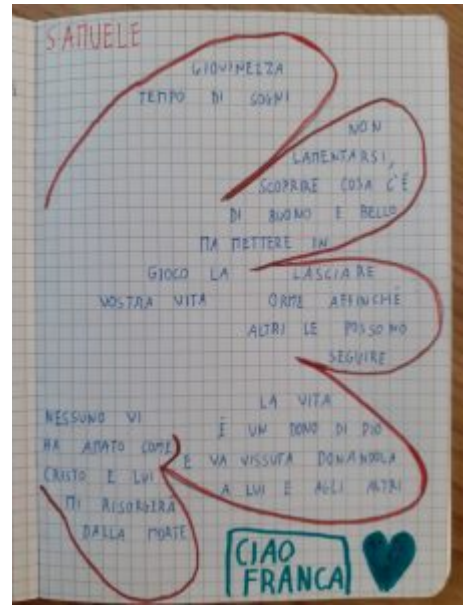 SAMUELE
GIOVINEZZA
TEMPO DI SOGNI
NON
LAMENTARSI,
SCOPRIRE COSA C'È
DI BUONO E BELLO
MA METTERE IN
GIOCO LA
VOSTRA VITA
LASCIARE
ORME AFFINCHÉ
ALTRI LE POSSONO
SEGUIRE
LA VITA
È UN DONO DI DIO
E VA VISSUTA DONANDOLA
A LUI E AGLI ALTRI
NESSUNO VI
HA AMATO COME
CRISTO E LUI
MI RISORGERÀ
DALLA MORTE
CIAO
FRANCA